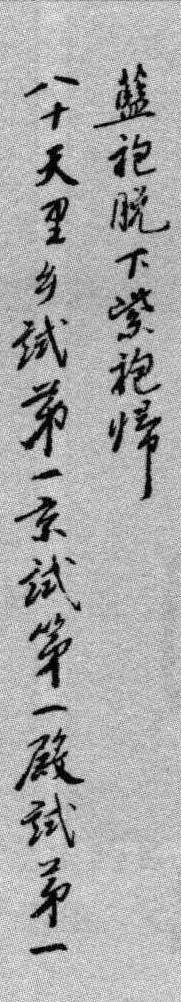 藍袍脱下紫袍歸
八十天里乡試第一京試第一殿試第一